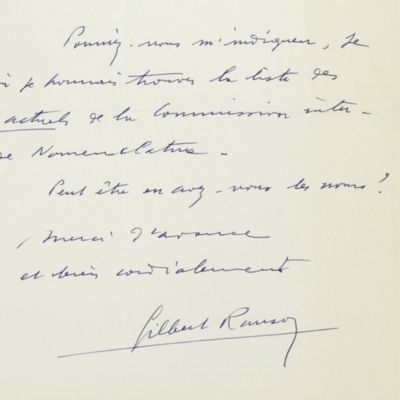 Pourriez-vous m'indiquer, je
si je pourrais trouver la liste des
actuels de la Commission inter-
de Nomenclature.
Peut être en avez-vous les noms?
Merci d'avance
et bien cordialement
Gilbert Ranson